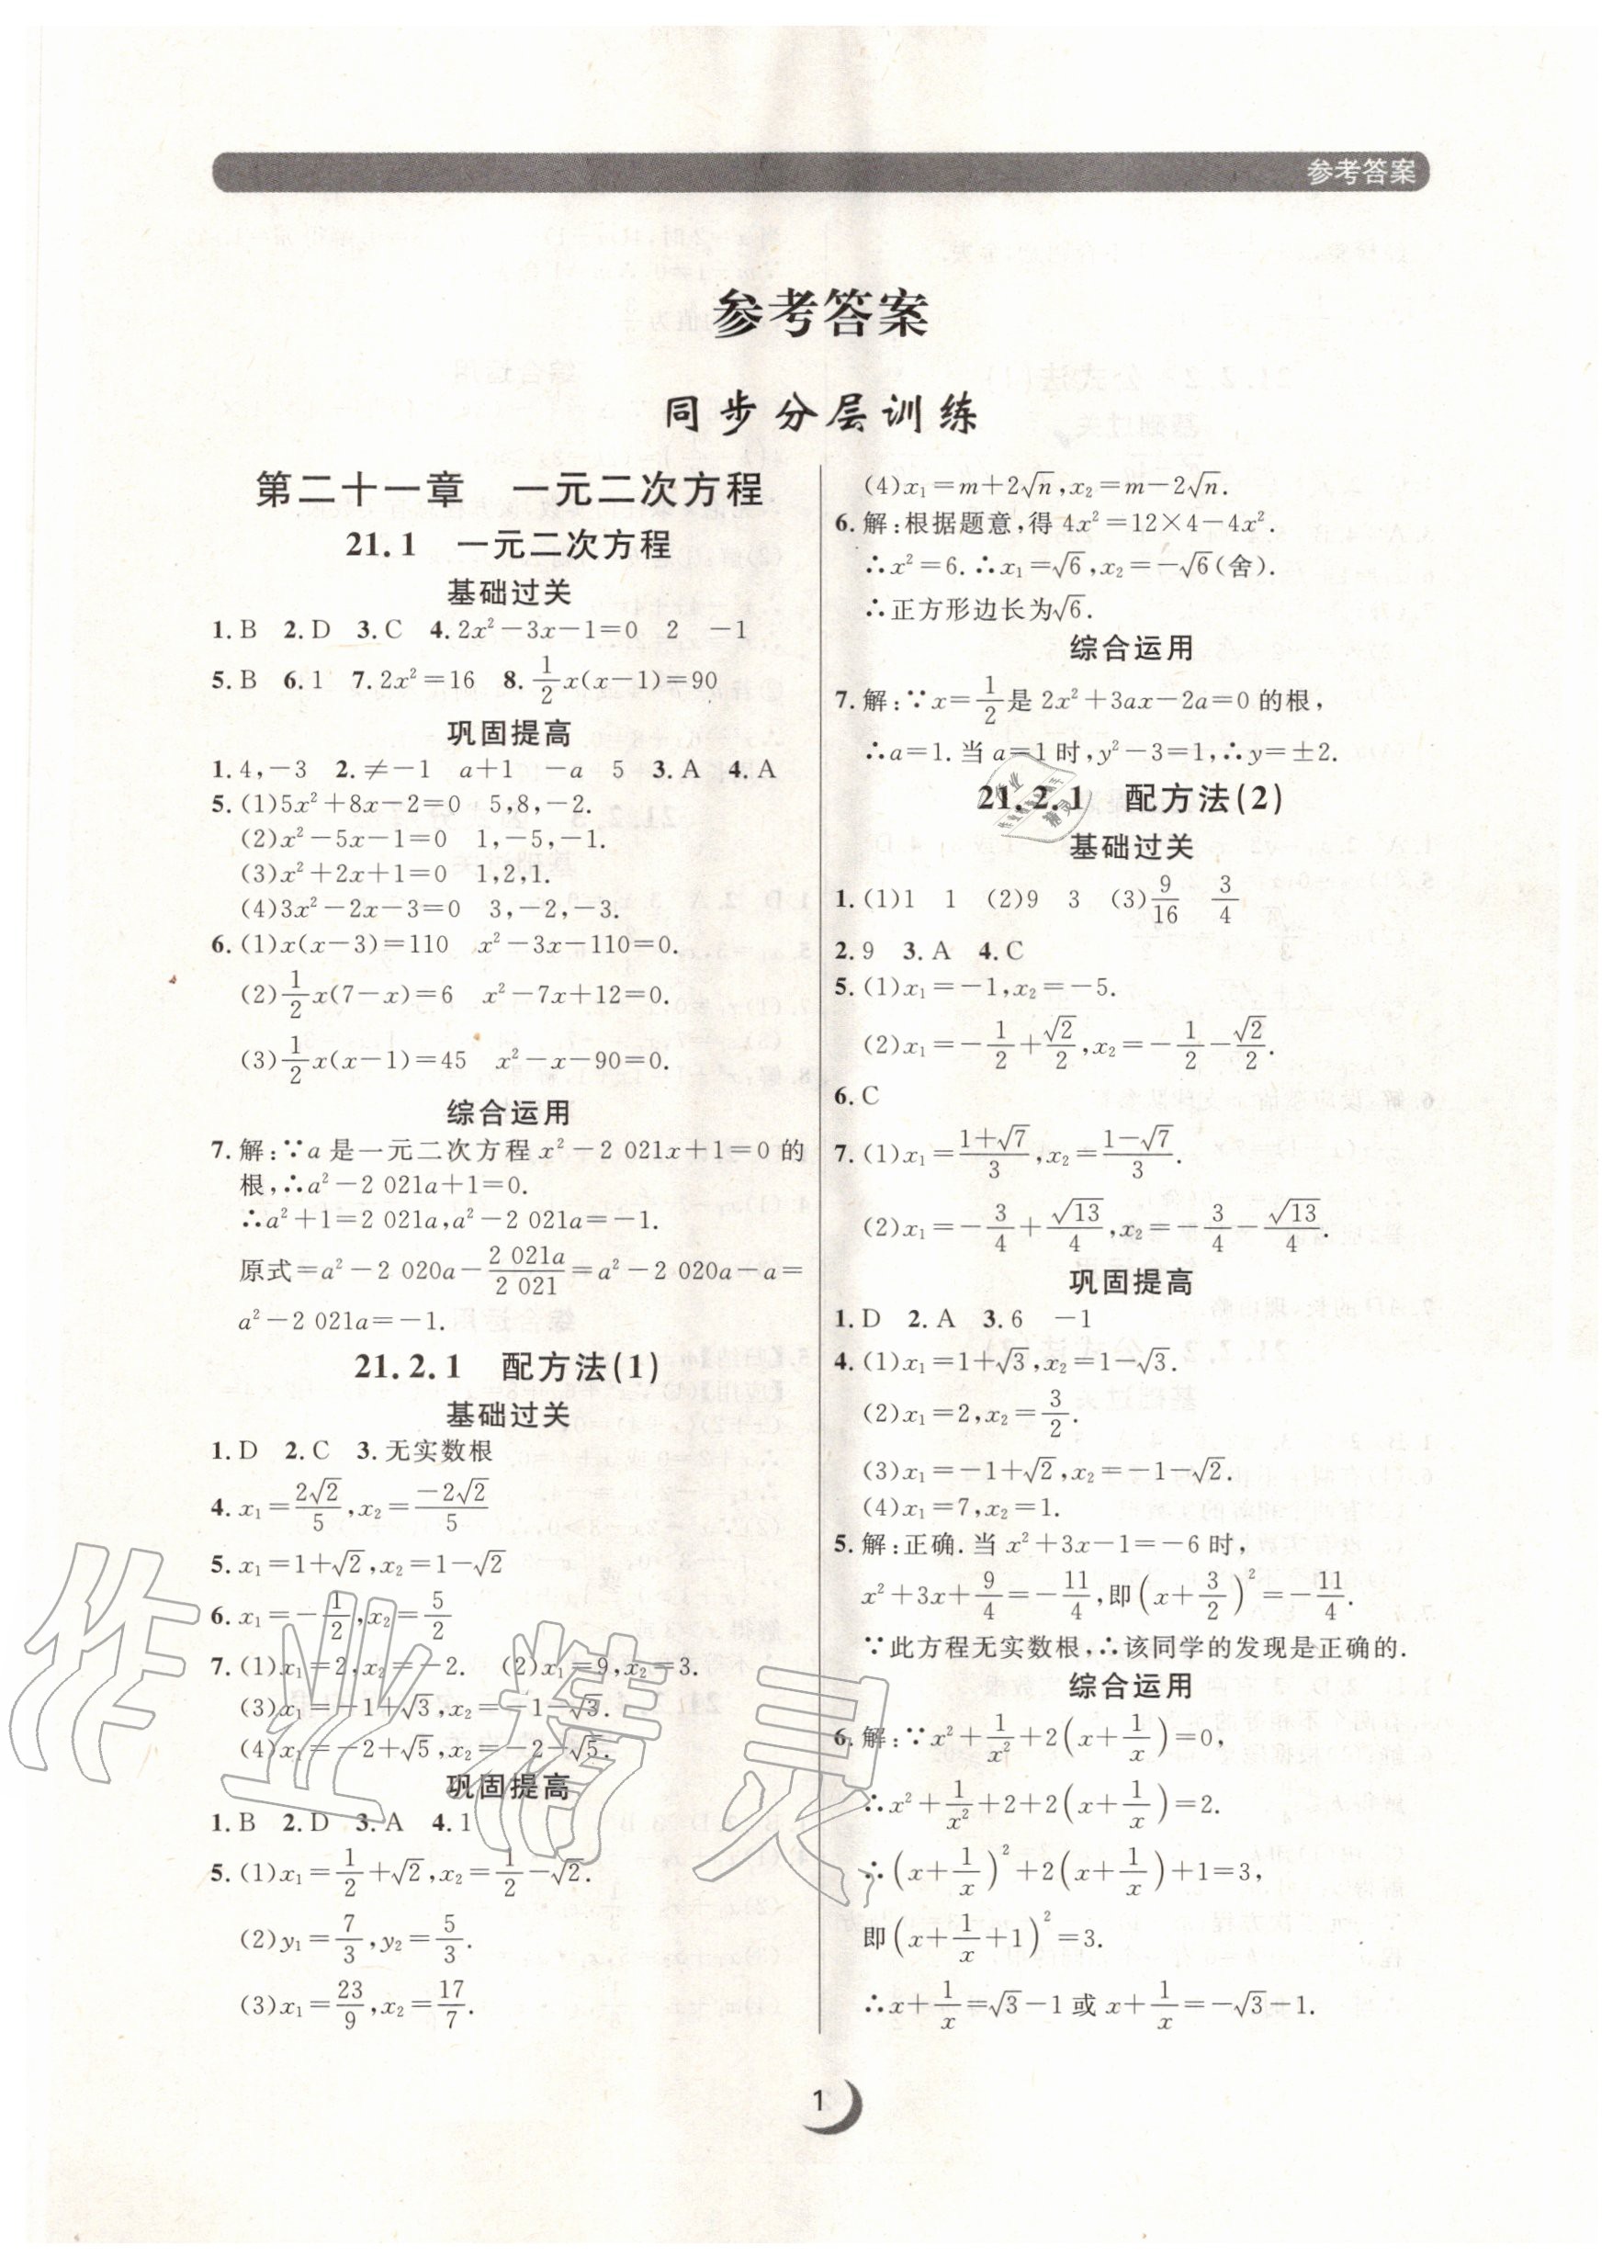 参考答案
参考答案
同步分层训练
第二十一章 一元二次方程
21.1 一元二次方程
基础过关
1.B 2.D 3.C 4.2x²-3x-1=0 2 -1
5.B 6.1 7.2x²=16 8.1/2x(x-1)=90
巩固提高
1.4,-3 2.≠-1 a+1 -a 5 3.A 4.A
5.(1)5x²+8x-2=0 5,8,-2.
(2)x²-5x-1=0 1,-5,-1.
(3)x²+2x+1=0 1,2,1.
(4)3x²-2x-3=0 3,-2,-3.
6.(1)x(x-3)=110 x²-3x-110=0.
(2)1/2x(7-x)=6 x²-7x+12=0.
(3)1/2x(x-1)=45 x²-x-90=0.
综合运用
7.解:∵a是一元二次方程x²-2 021x+1=0的
根,∴a²-2 021a+1=0.
∴a²+1=2 021a,a²-2 021a=-1.
原式=a²-2 020a-2 021a/2 021=a²-2 020a-a=
a²-2 021a=-1.
21.2.1 配方法(1)
基础过关
1.D 2.C 3.无实数根
4.x₁=2√2/5,x₂=-2√2/5
5.x₁=1+√2,x₂=1-√2
6.x₁=-1/2,x₂=5/2
7.(1)x₁=2,x₂=-2. (2)x₁=9,x₂=3.
(3)x₁=-1+√3,x₂=-1-√3.
(4)x₁=-2+√5,x₂=-2-√5.
巩固提高
1.B 2.D 3.A 4.1
5.(1)x₁=1/2+√2,x₂=1/2-√2.
(2)y₁=7/3,y₂=5/3.
(3)x₁=23/9,x₂=17/7.
(4)x₁=m+2√n,x₂=m-2√n.
6.解:根据题意,得4x²=12×4-4x².
∴x²=6.∴x₁=√6,x₂=-√6(舍).
∴正方形边长为√6.
综合运用
7.解:∵x=1/2是2x²+3ax-2a=0的根,
∴a=1.当a=1时,y²-3=1,∴y=±2.
21.2.1 配方法(2)
基础过关
1.(1)1 1 (2)9 3 (3)9/16 3/4
2.9 3.A 4.C
5.(1)x₁=-1,x₂=-5.
(2)x₁=-1/2+√2/2,x₂=-1/2-√2/2.
6.C
7.(1)x₁=(1+√7)/3,x₂=(1-√7)/3.
(2)x₁=-3/4+√13/4,x₂=-3/4-√13/4.
巩固提高
1.D 2.A 3.6 -1
4.(1)x₁=1+√3,x₂=1-√3.
(2)x₁=2,x₂=3/2.
(3)x₁=-1+√2,x₂=-1-√2.
(4)x₁=7,x₂=1.
5.解:正确.当x²+3x-1=-6时,
x²+3x+9/4=-11/4,即(x+3/2)²=-11/4.
∵此方程无实数根,∴该同学的发现是正确的.
综合运用
6.解:∵x²+1/x²+2(x+1/x)=0,
∴x²+1/x²+2+2(x+1/x)=2.
∴(x+1/x)²+2(x+1/x)+1=3,
即(x+1/x+1)²=3.
∴x+1/x=√3-1或x+1/x=-√3-1.
1
作业精灵